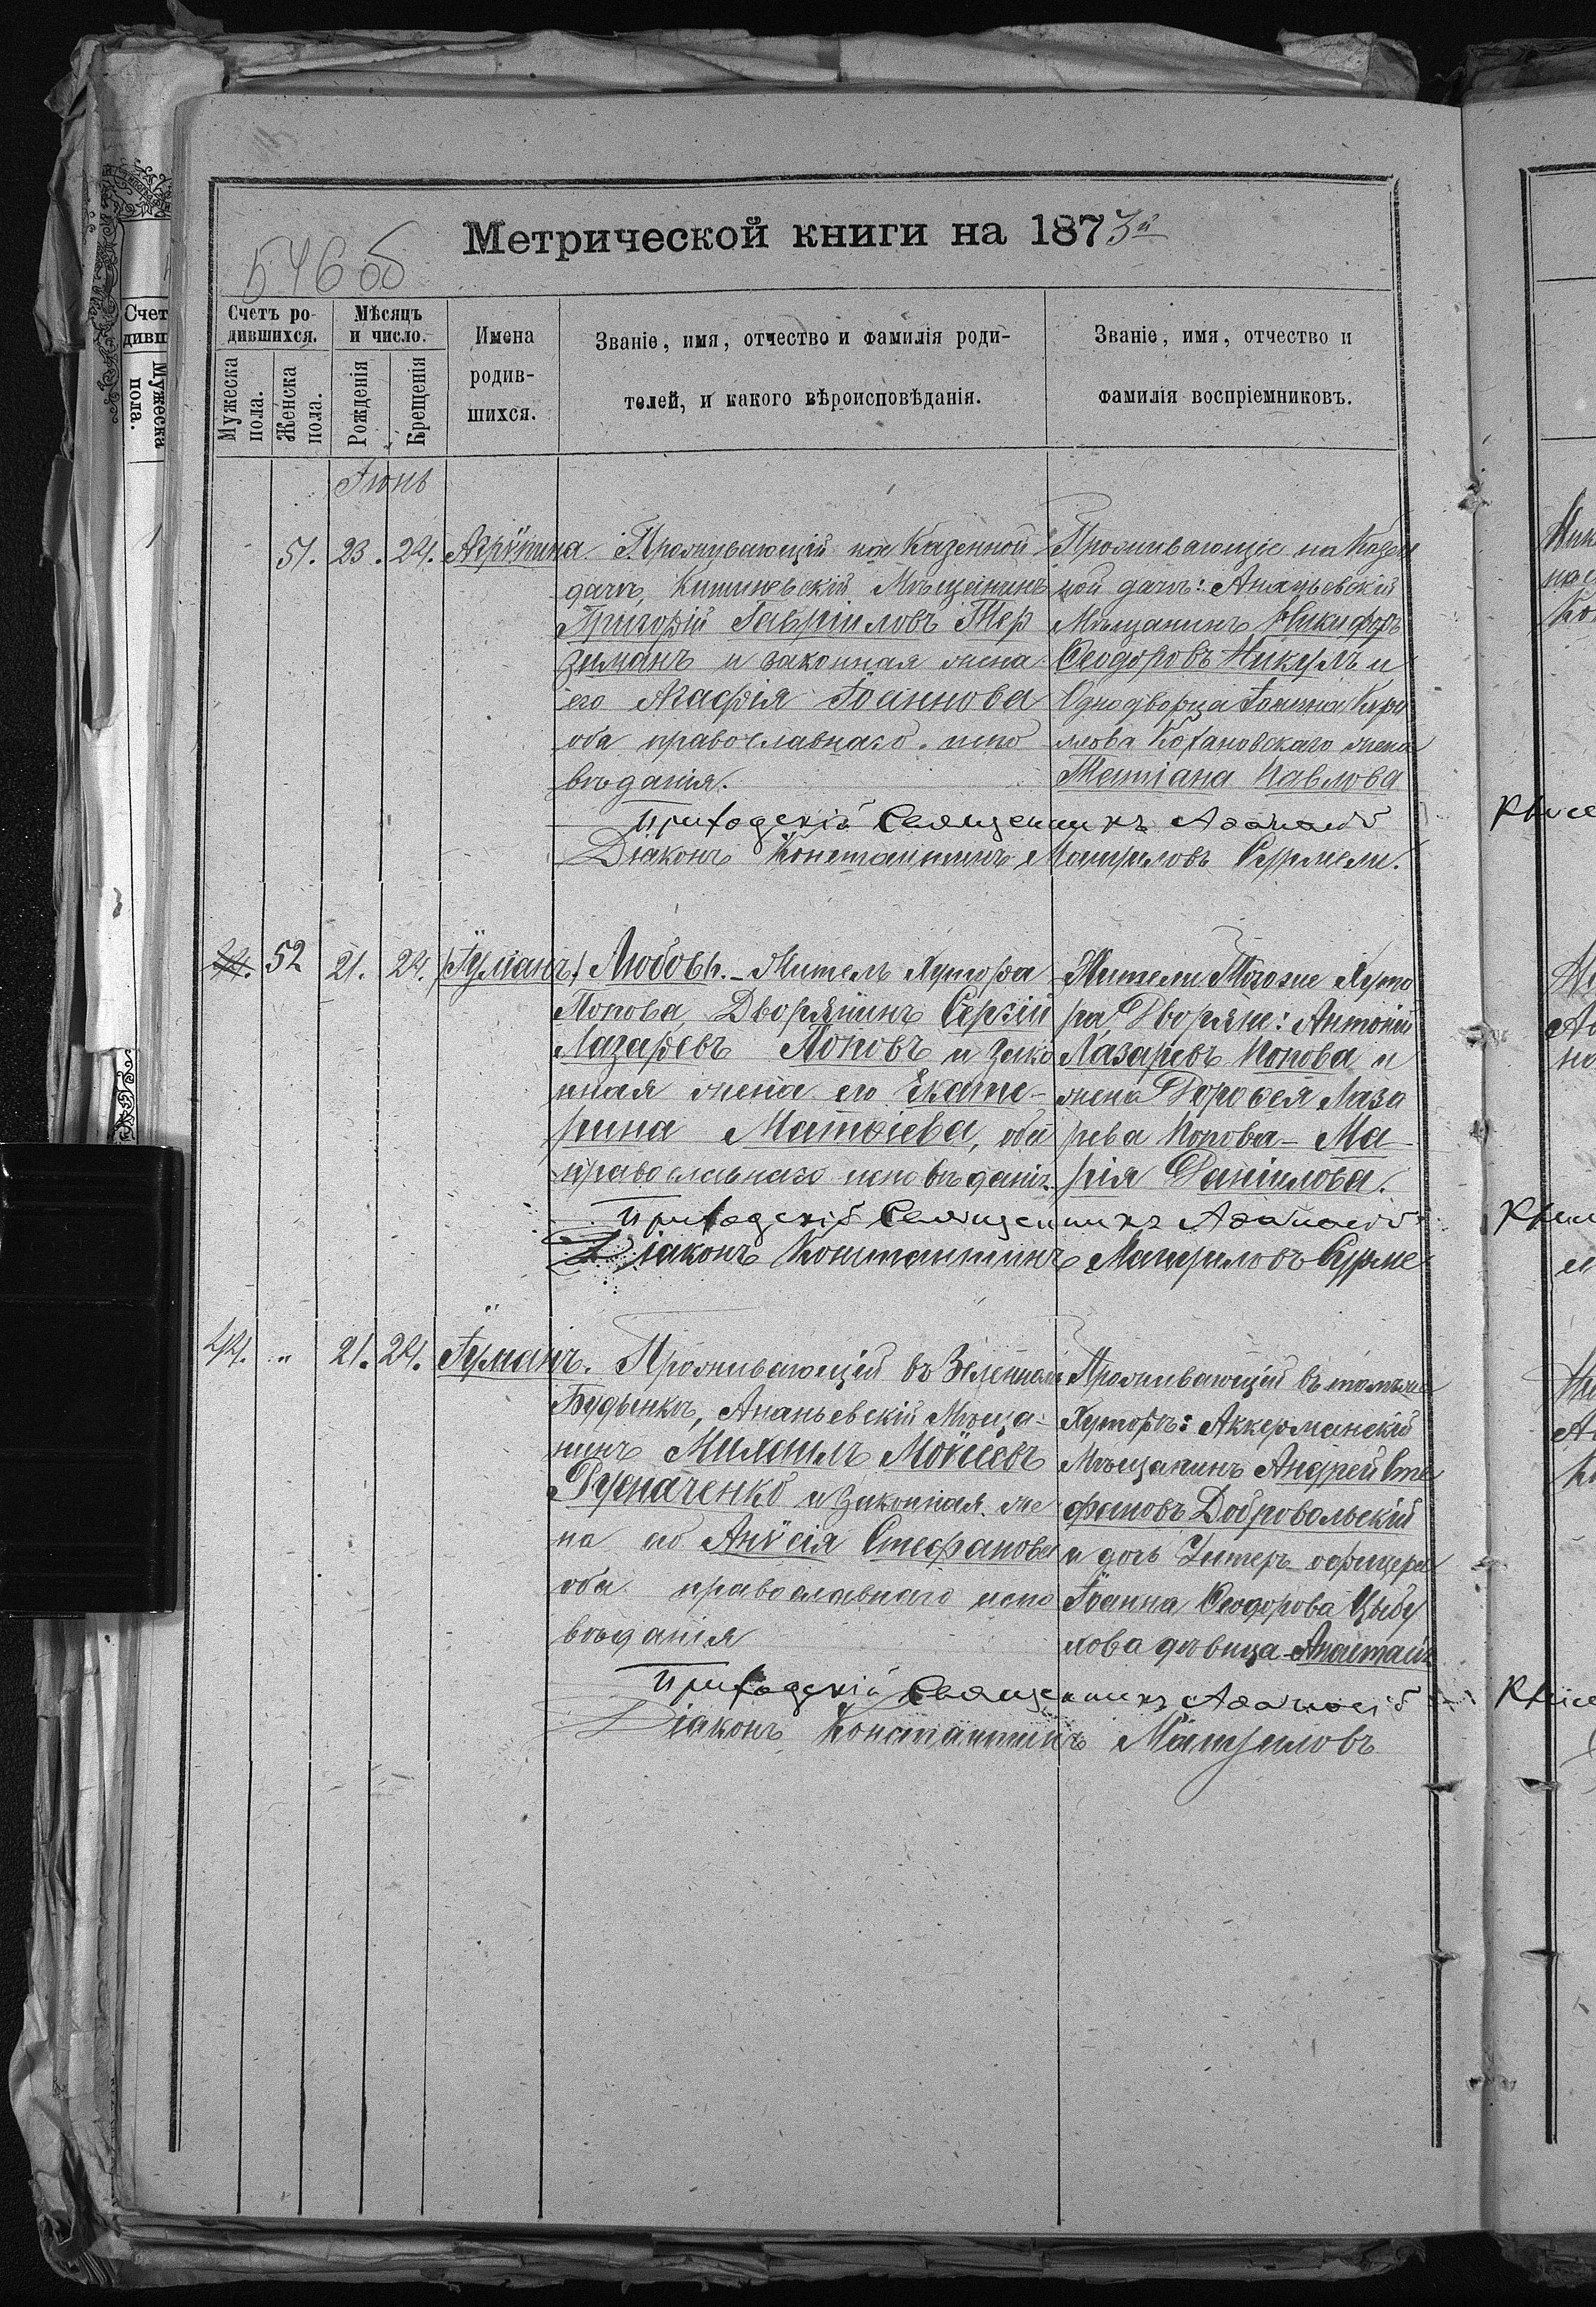 546 об
Метрической книги на 1873й
Счетъ ро-
дившихся.
Мѣсяцъ
и число.
Мужеска
пола.
Женска
пола.
Рожденія
Крещенія
Имена
родив-
шихся.
Званіе, имя, отчество и фамилія роди-
телей, и какого вѣроисповѣданія.
Званіе, имя, отчество и
фамилія воспріемниковъ.
Іюнь
51. 23. 24. Агрѵпина
Проживающій на Казенной
дачѣ, Кишиневскій Мѣщанинъ
Григорій Гавріиловъ Тер
зиманъ и законная жена
его Агафія Іоаннова
оба православнаго испо
вѣданія.
Проживающіе на Казен
ной дачѣ: Ананьевскій
Мѣщанинъ Никифоръ
Ѳеодоровъ Никулъ и
Однодворца Іоанна Кири
лова Кохановскаго жена
Татіана Павлова
Приходскій Священникъ
Діаконъ Константинъ
44. 52 21. 24. (Іуліанъ) Любовь.
Житель Хутора
Попова, Дворянинъ Сергій
Лазаревъ Поповъ и зако
нная жена его Екате-
рина Матѳіева, оба
православнаго исповѣданія.
Жители Тогоже Хуто
ра, Дворяне: Антоній
Лазаревъ Попова и
жена Дороѳея Лаза
рева Попова - Ма-
рія Даніилова.
Приходскій Священникъ
Діаконъ Константинъ
44. " 21. 24. Іуліанъ.
Проживающій въ
Ананьевскій Мѣща-
нинъ Михаилъ Моѵсеевъ
и Законная же
на его Анѵсія Стефанова
оба православнаго испо
вѣданія
Проживающій въ томъже
Хуторѣ: Аккерманскій
Мѣщанинъ Андрей Сте
фановъ Добровольскій
и дочь Унтеръ-офицера
Іоанна Ѳеодорова Цыбу
лова дѣвица
Приходскій Священникъ
Діаконъ Константинъ